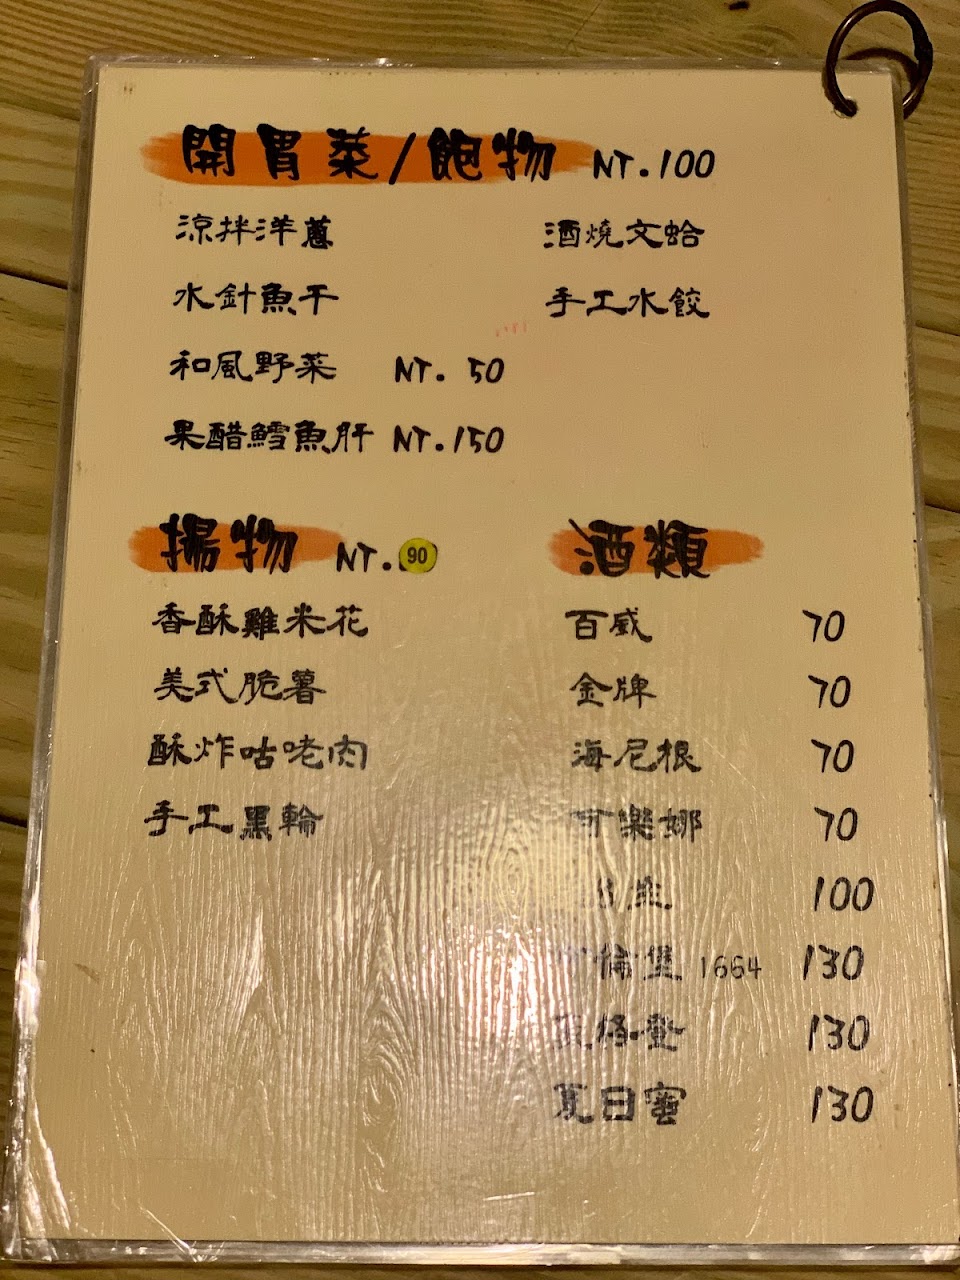 開胃菜/飽物 NT.100
涼拌洋蔥
水針魚干
和風野菜 NT. 50
果醋鱈魚肝 NT.150
酒燒文蛤
手工水餃
揚物 NT. 90
香酥雞米花
美式脆薯
酥炸咕咾肉
手工黑輪
酒類
百威 70
金牌 70
海尼根 70
可樂娜 70
100
倫堡 1664 130
格登 130
夏日蜜 130